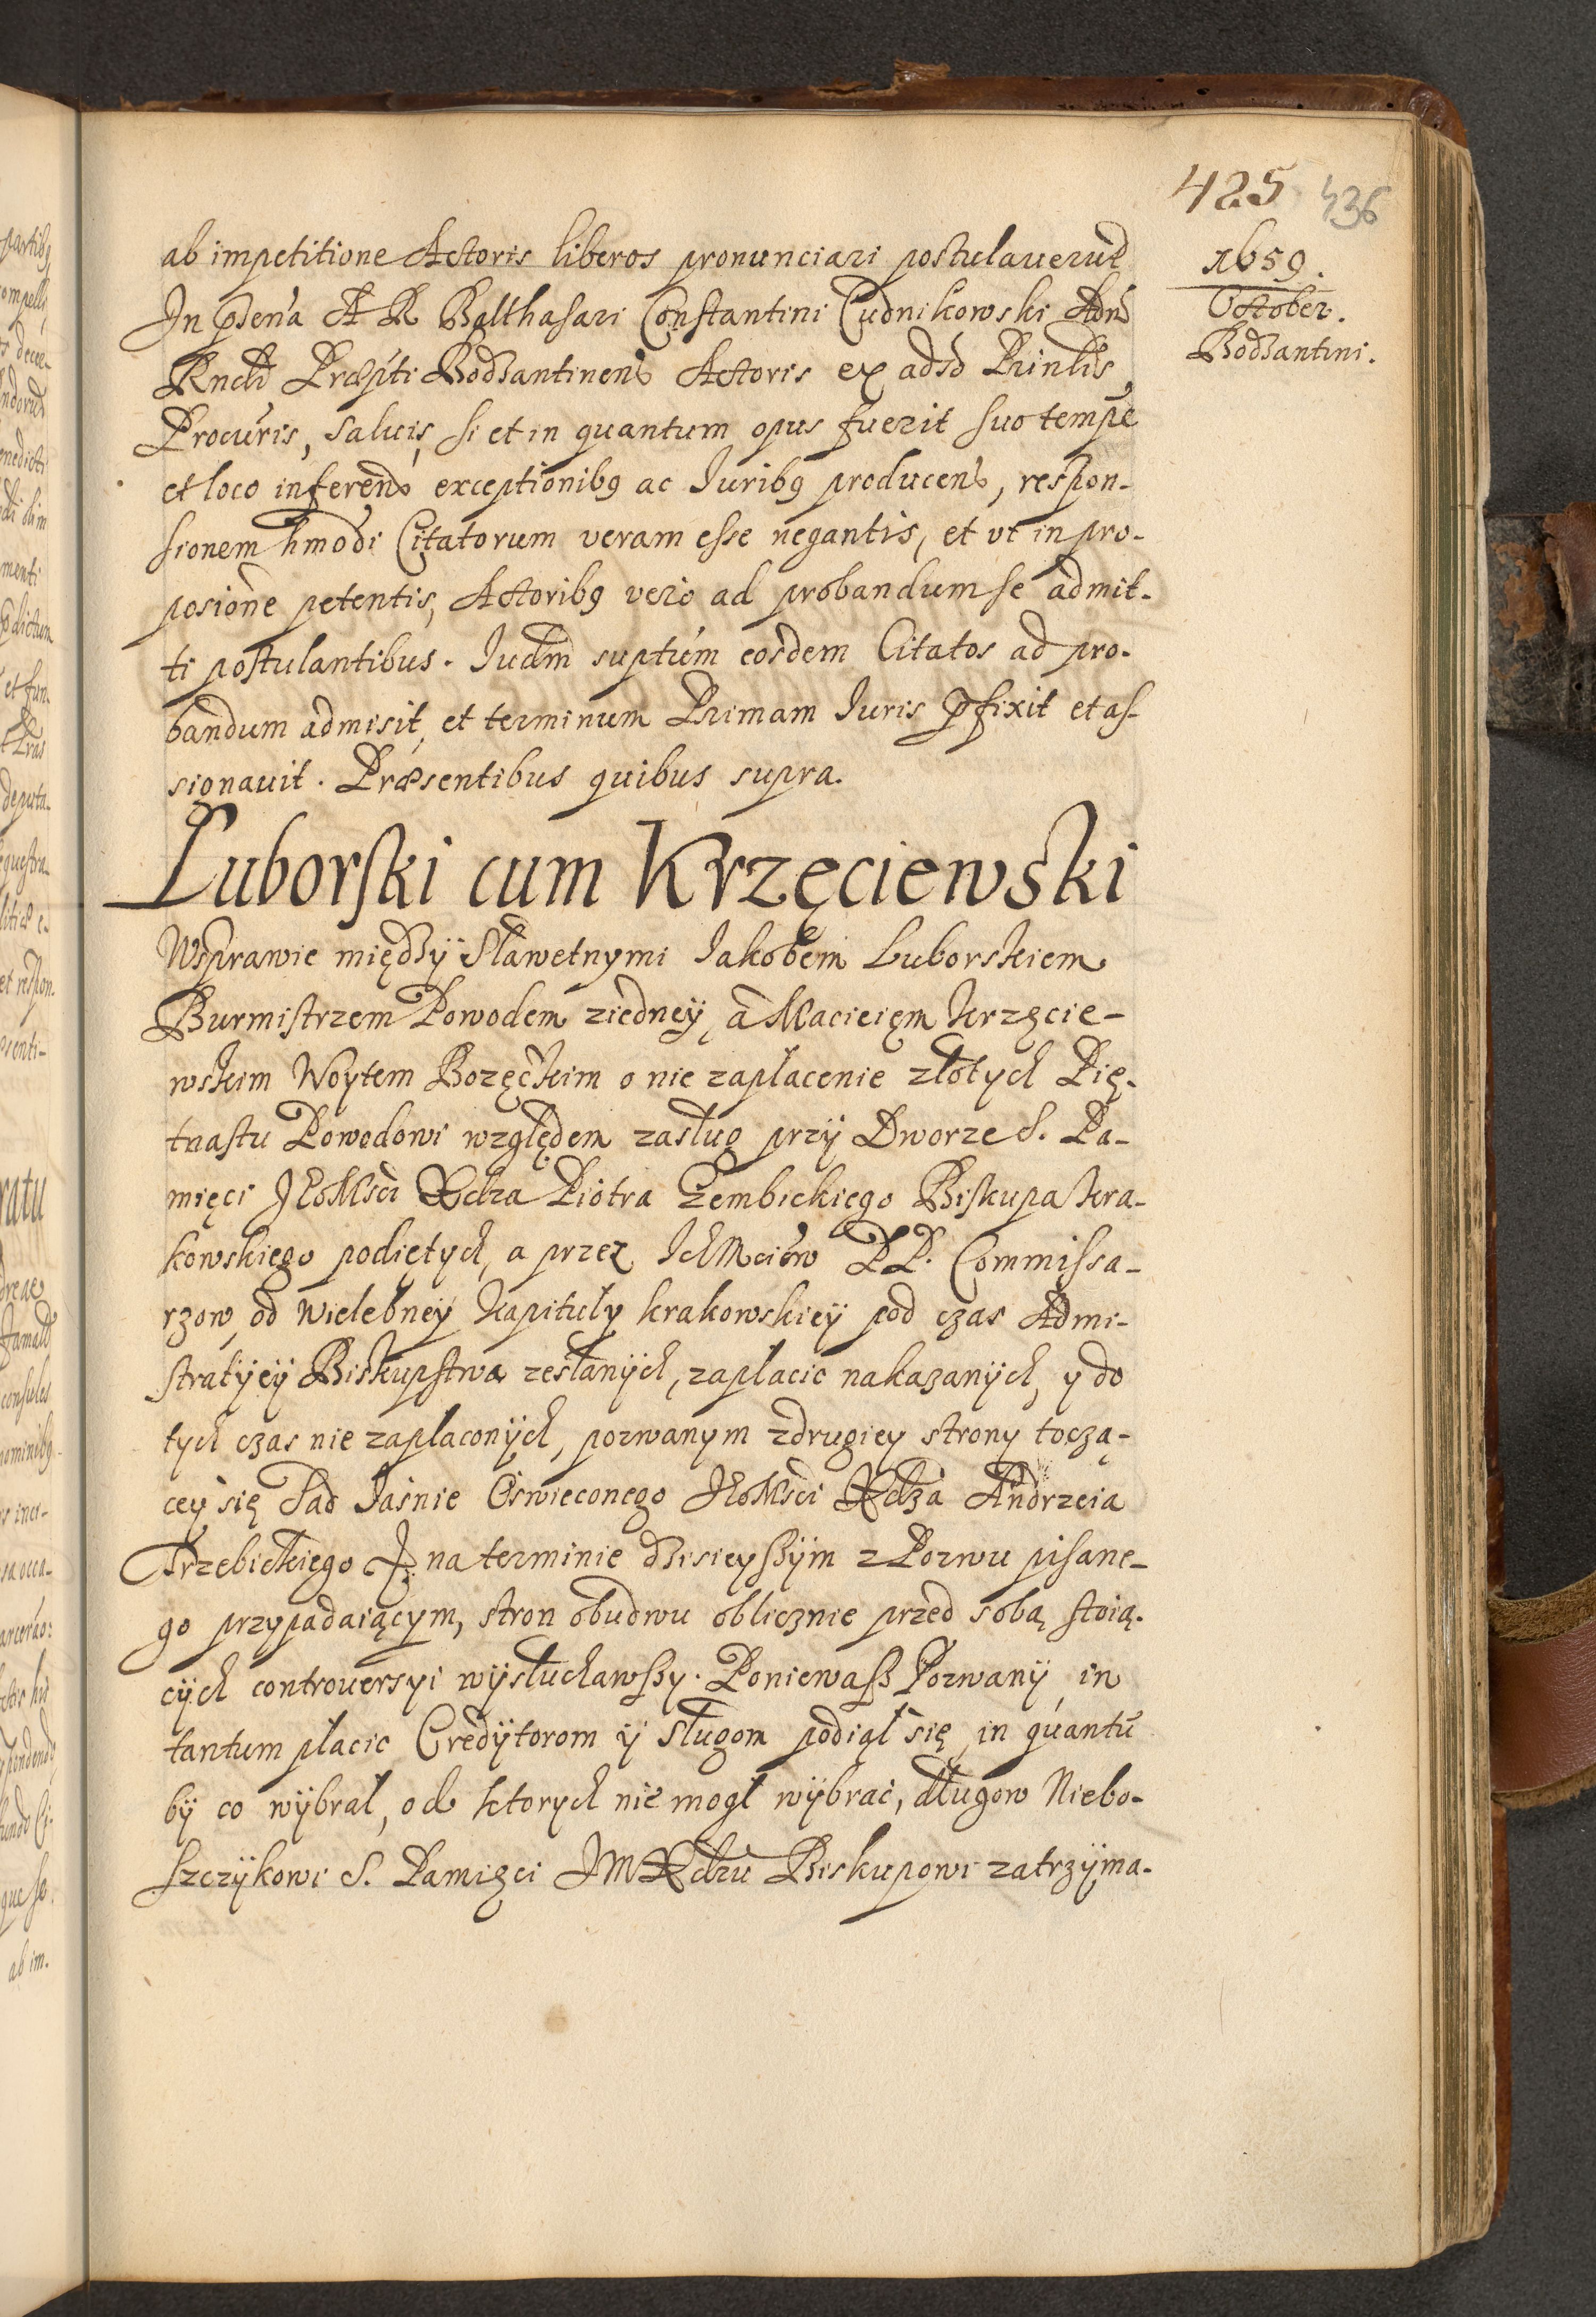 425 436
1659.
October.
Bodzantini.
ab impetitione Actoris liberos pronunciari postulaverut
In pñtia A R Balthasari Constantini Cudnikowski Adm
Rndi Præpti Bodzantinens Actoris ex adso Prinlis
Procuris, salvis, si et in quantum opus fuerit suo tempe
et loco inferend exceptionibq ac Juribq producend, respon-
sionem hmodi Citatorum veram esse negantis, et ut in pro-
posione petentis, Actoribq vero ad probandum se admit-
ti postulantibus. Judm suptum eosdem Citatos ad pro-
bandum admisit, et terminum Primam Juris pfixit et as-
signavit. Præsentibus quibus supra.
Luborski cum Krzęciewski
Wsprawie międzÿ Sławetnymi Jakobem Luborskiem
Burmistrzem Powodem ziedneÿ, a Macieięm Krzęcie-
wskim Woytem Bozęckim o nie zapłacenie złotych Pię-
tnastu Powodowi względem zasług przÿ Dworze S. Pa-
mięci JEoMsci Xcdza Piotra Gembickiego Biskupa Kra-
kowskiego podiętych, a przez IchMciow PP. Commissa-
rzow, od Wielebneÿ Kapituły krakowskieÿ pod czas Admi-
stratÿeÿ Biskupstwa zesłanÿch, zapłacic nakazanÿch, y do
tych czas nie zapłaconÿch, pozwanym zdrugiey strony toczą-
cey się Sad Jasnie Oswieconego JEoMsci Xcdza Andrzeia
Trzebickiego &. na terminie dzisieyszÿm z Pozwu pisane-
go przypadaiącym, stron obudwu oblicznie przed sobą stoią-
cÿch controversyi wÿsłuchawszy. Poniewasz Pozwanÿ in
tantum płacic Credÿtorom ÿ sługom podiął się, in quantū
bÿ co wÿbrał, od ktorych nie mogł wÿbrać, długow Niebo-
szczÿkowi S. Pamięci JMXcdzu Biskupowi zatrzÿma-